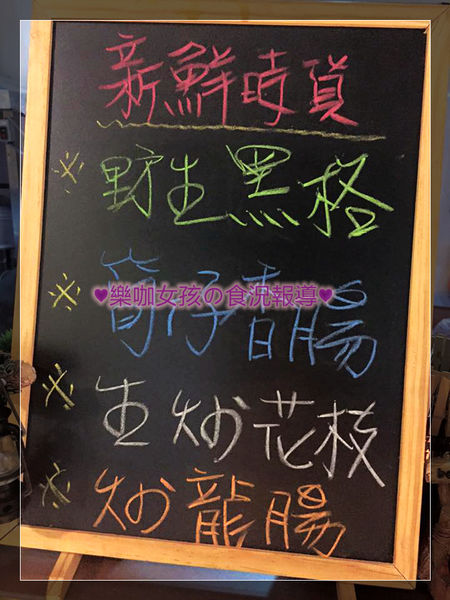 新鮮時貨
※野生黑格
♥樂咖女孩の食況報導♥
※筍子香腸
※生炒花枝
※炒龍腸